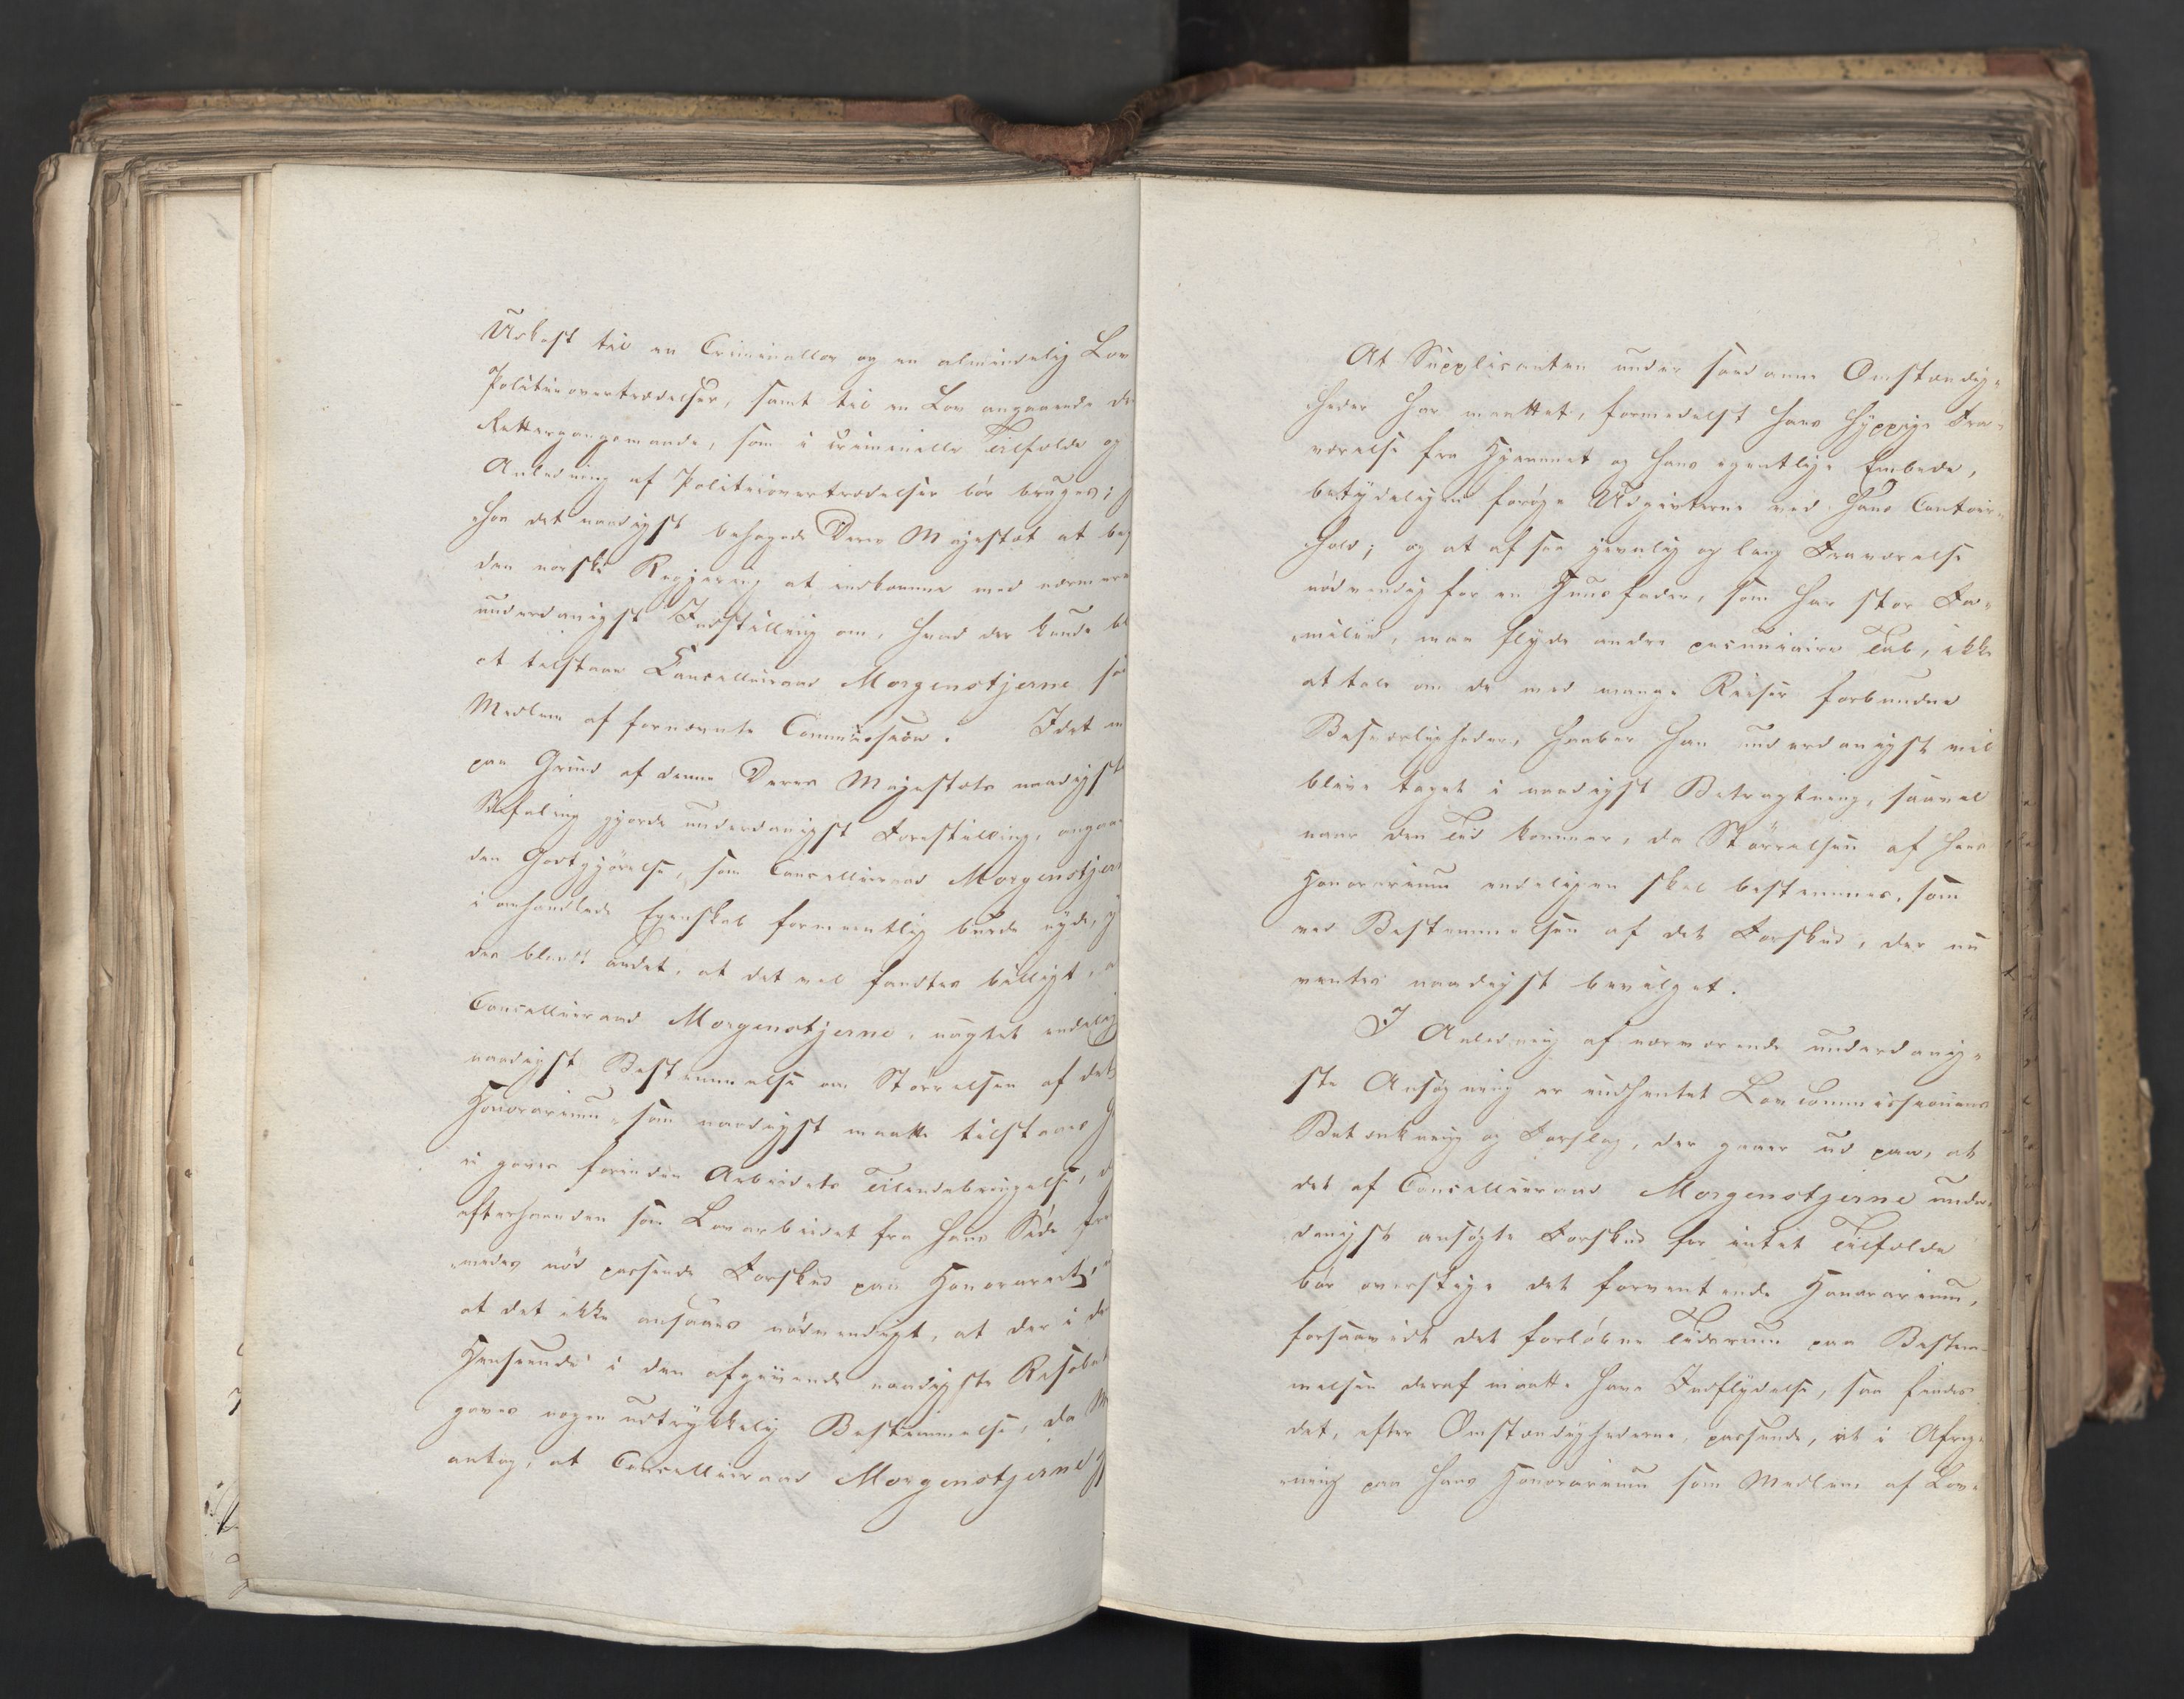 Udkast til en Criminallov og en almindelig Lov
Politieovertrædelser, samt til en Lov angaaende de
Rettergangsmaade, som i criminelle Tilfælde og
Anledning af Politieovertrædelser bör bruges;
thor det naadigst behagede Deres Majestæt at
den norske Regjering at indkomme med nærmere
underdanigst Indstilling om, hvad der kunde
at tilstaae Cancelliraad Morgenstjerne
Medlem af fornævnte Commission. Idet
paa Grund af denne Deres Majestæts naadigste
Befaling gjorde underdanigst Forestilling, angaa
den Godtgjörelse, som Cancelliraad Morgenstjer
i omhandlede Egenskab formeentlig burde nyde,
der blandt andet, at det vel fandtes billigt,
Cancelliraad Morgenstjerne, uagtet endelig
naadigst Bestemmelse om Störrelsen af det
Honorarium, som naadigst maatte tilstaaes
ei gaves forinden Arbeidets Tilendebringelse,
efterhaanden som Lovarbeidet fra hans Side
medes nöd passende Forskud paa Honoraret,
at det ikke ansaaes nödvendigt, at der i
Henseende i den afgivende naadigste
gaves nogen udtrykkelig Bestemmelse, da
antog, at Cancelliraad Morgenstjerne
At Supplicanten under saadanne Omstændig-
heder har maattet, formedelst hans hyppige Fra-
værelse fra Hjemmet og hans egentlige Embede,
betydeligen foröge Udgivterne ved hans Contoir-
hold; og at af saa jevnlig og lang Fraværelse
nödvendig for en Huusfader, som har stor Fa-
milie, maa flyde andre pecuniaire Tab, ikke
at tale om de med mange Reiser forbundne
Besværligheder, haaber han underdanigst vil
blive taget i naadigst Betragtning, saavel
naar den Tid kommer, da Störrelsen af hans
Honorarium endeligen skal bestemmes, som
ved Bestemmelsen af det Forskud, der nu
ventes naadigst bevilget.
I Anledning af nærværende underdanig-
ste Ansögning er indhentet Lovcommissionens
Betænkning og Forslag, der gaaer ud paa, at
det af Cancelliraad Morgenstjerne under-
danigst ansögte Forskud for intet Tilfælde
bör overstige det forventende Honorarium,
forsaavidt det forlöbne Tidsrum paa Bestem-
melsen deraf maatte have Indflydelse, saa findes
det, efter Omstændighederne, passende, at i Afreg-
ning paa hans Honorarium som Medlem af Lov-